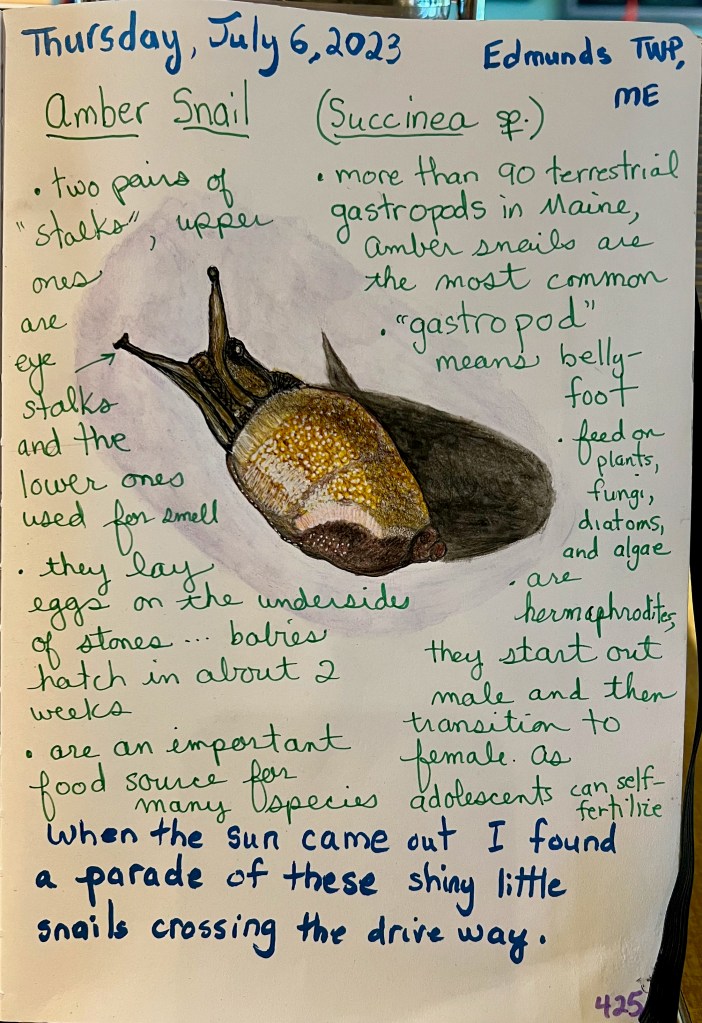 Thursday, July 6, 2023
Edmunds TWP,
ME
Amber Snail (Succinea sp.)
• two pairs of
"stalks", upper
ones
are
eye
stalks
and the
lower ones
used for smell
• they lay
eggs on the underside
of stones ... babies
hatch in about 2
weeks
• are an important
food source for
many species
• more than 90 terrestrial
gastropods in Maine,
amber snails are
the most common
• "gastropod"
means belly-
foot
• feed on
plants,
fungi,
diatoms,
and algae
• are
hermaphrodites,
they start out
male and then
transition to
female. As
adolescents can self-
fertilize
When the sun came out I found
a parade of these shiny little
snails crossing the drive way.
425